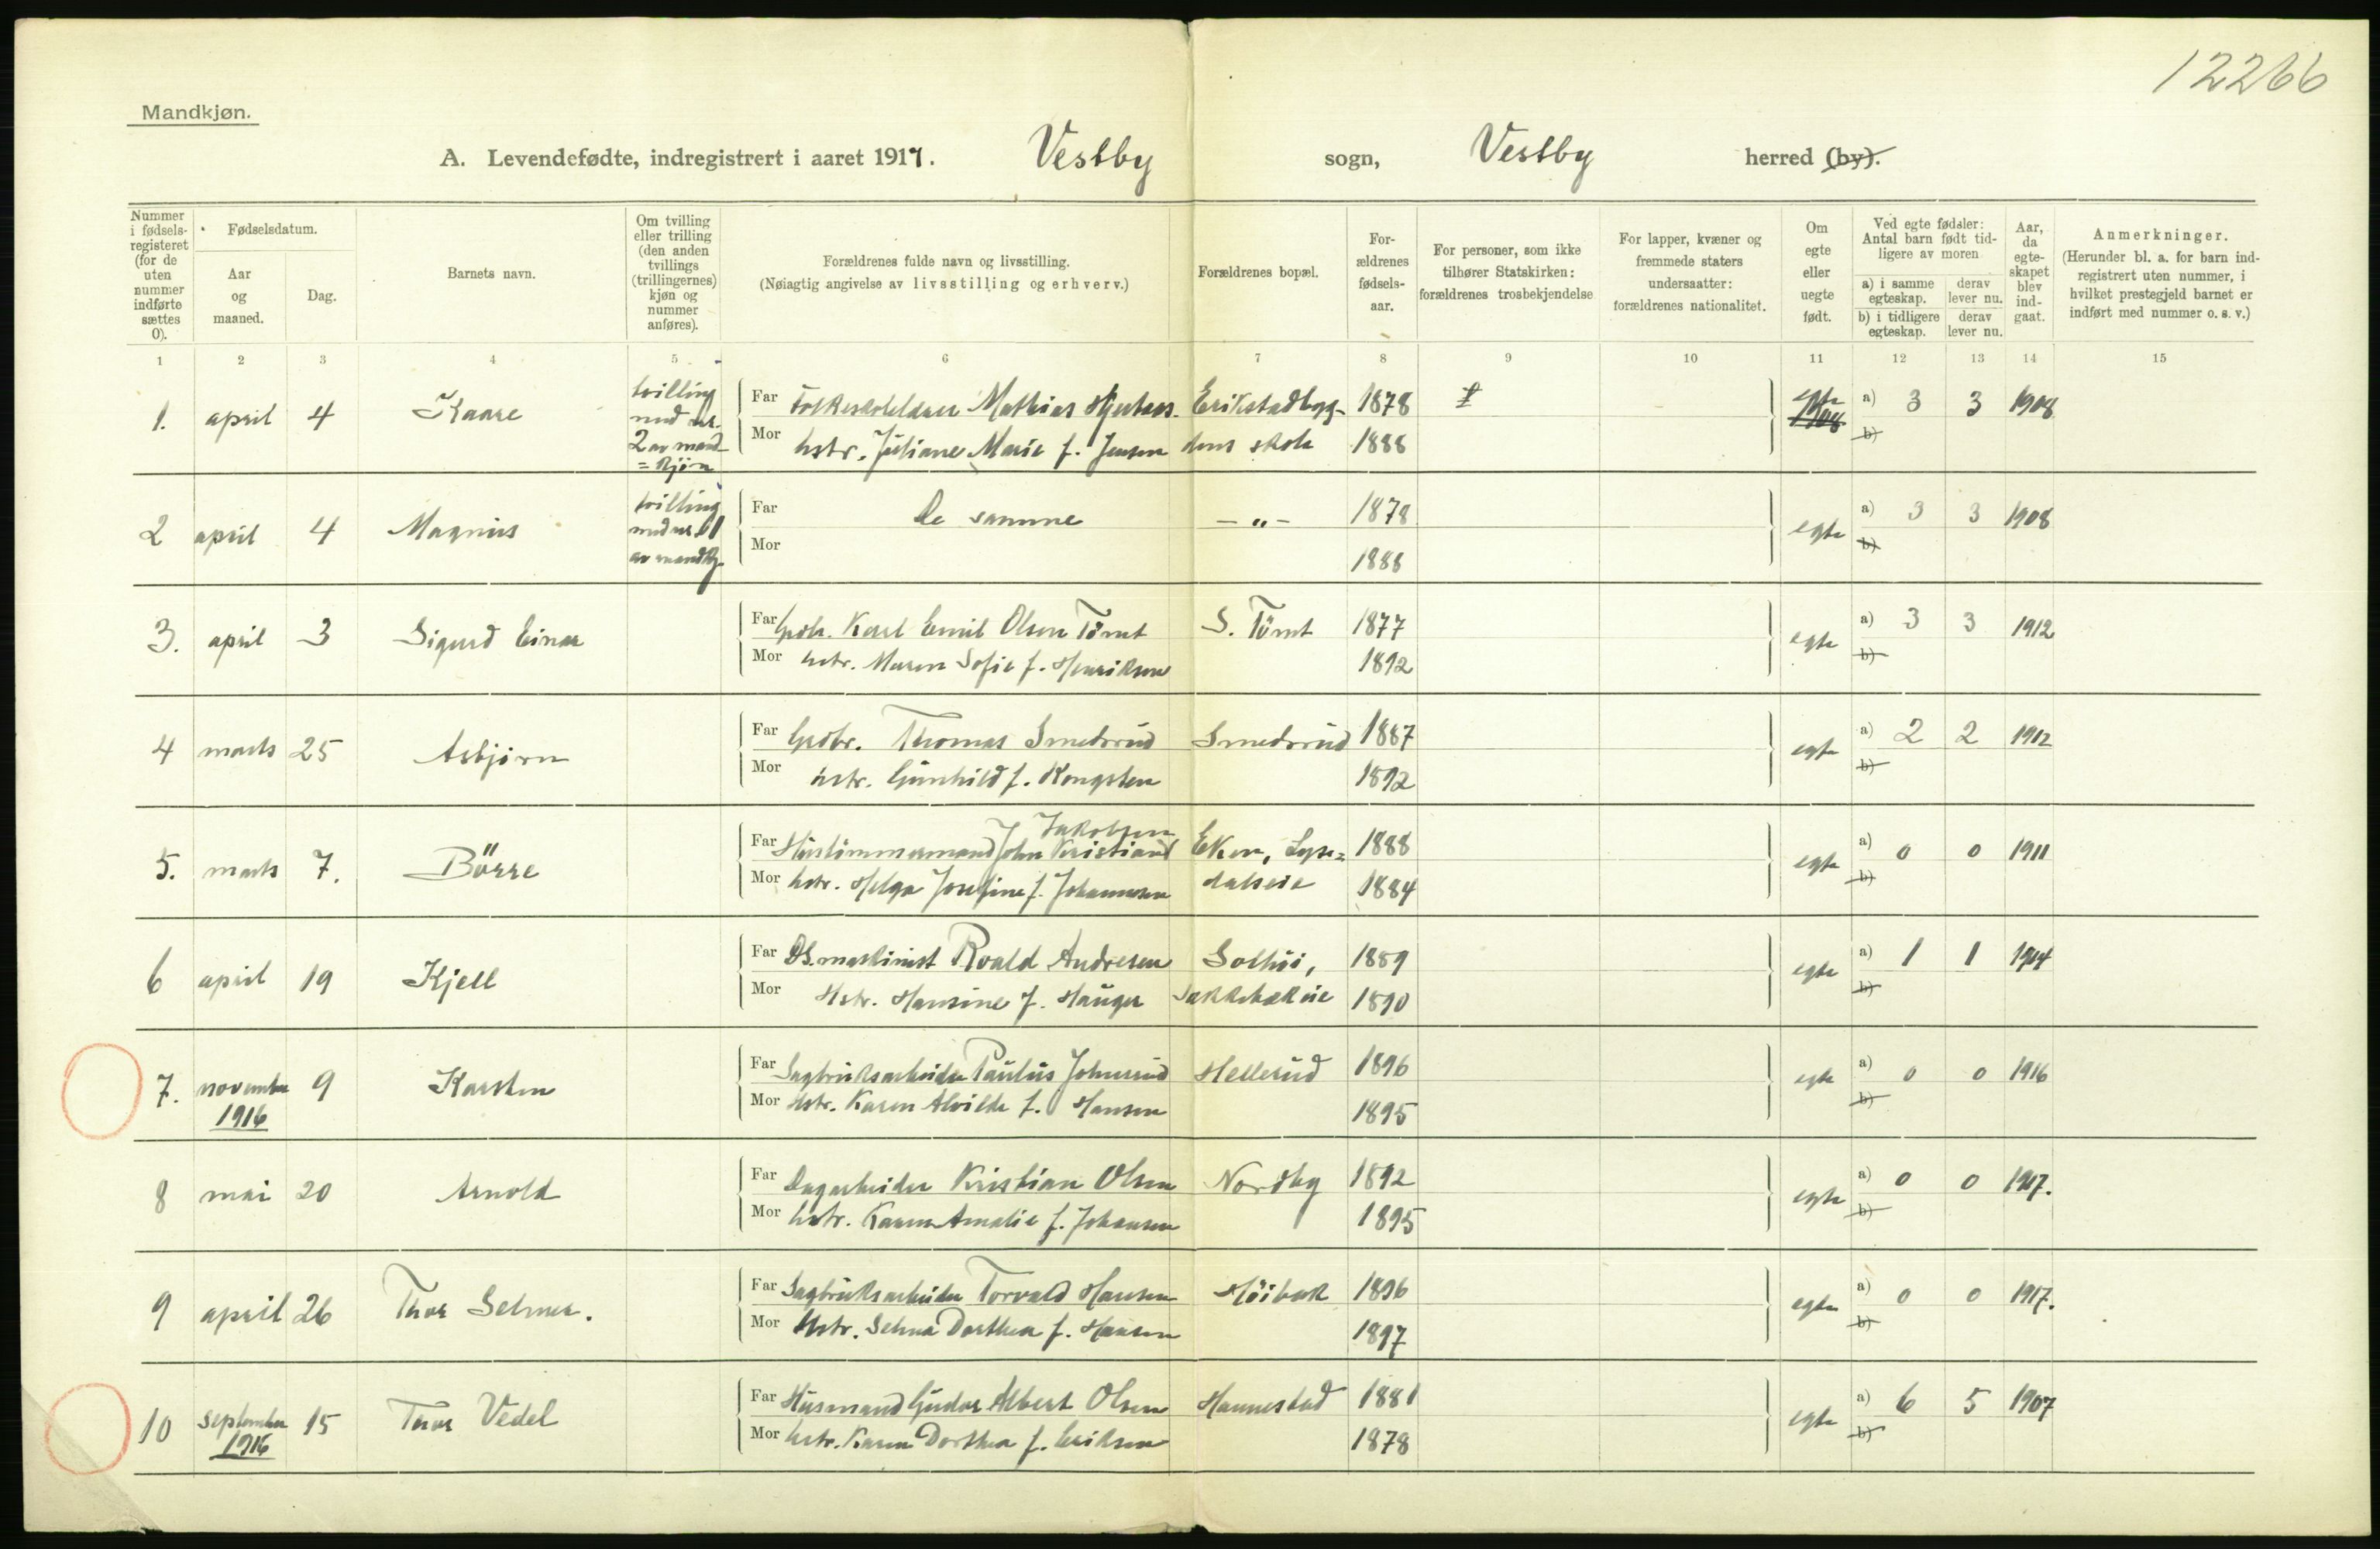 12266
Mandkjøn.
A. Levendefødte, indregistrert i aaret 1917. Vestby sogn, Vestby herred (by).
Nummer i fødsels-registeret (for de uten nummer indførte sættes 0).
Fødselsdatum.
Aar og maaned.
Dag.
Barnets navn.
Om tvilling eller trilling (den anden tvillings (trillingernes) kjøn og nummer anføres).
Forældrenes fulde navn og livsstilling.
(Nøiagtig angivelse av livsstilling og erhverv.)
Forældrenes bopæl.
For-ældrenes fødsels-aar.
For personer, som ikke tilhører Statskirken: forældrenes trosbekjendelse
For lapper, kvæner og fremmede staters undersaatter: forældrenes nationalitet.
Om egte eller uegte født.
Ved egte fødsler: Antal barn født tid-ligere av moren
a) i samme egteskap.
derav lever nu.
b) i tidligere egteskap.
derav lever nu.
Aar, da egte-skapet blev ind-gaat.
Anmerkninger.
(Herunder bl. a. for barn ind-registrert uten nummer, i hvilket prestegjeld barnet er indført med nummer o. s. v.)
1 2 3 4 5 6 7 8 9 10 11 12 13 14 15
1. april 4 Kaare tvilling med nr. 2 av mand=kjøn
Far Mathias 1878 egte a) 3 3 1908
Mor hstr. Juliane Marie f. Jensen skole 1888 b)
2 april 4 Magnus tvilling med nr 1 av mandkj.
Far De samme — „ — 1878 egte a) 3 3 1908
Mor 1888 b)
3. april 3 Sigurd Einar
Far Gbr. Karl Emil Olsen Tömt S. Tömt 1877 egte a) 3 3 1912
Mor hstr. Maren Sofie f. Henriksen 1892 b)
4 marts 25 Asbjørn
Far Gbr. Thomas Smedsrud Smedsrud 1887 egte a) 2 2 1912
Mor hstr. Gunhild f. Kongsten 1892 b)
5. marts 7. Börre
Far Hustømmermand John Kristian Jakobsen Eken, 1888 egte a) 0 0 1911
Mor hstr. Helga Josefine f. Johannesen 1884 b)
6 april 19 Kjell
Far DS.maskinist Roald Andresen Solhöi, 1889 egte a) 1 1 1914
Mor Hstr. Hansine f. Hauger 1890 b)
7. november 1916 9 Karsten
Far Sagbruksarbeider Paulus Johnsrud Hellerud 1896 egte a) 0 0 1916
Mor Hstr. Karen Alvilde f. Hansen 1895 b)
8 mai 20 Arnold
Far Dagarbeider Kristian Olsen Nordby 1892 egte a) 0 0 1917.
Mor hstr. Karen Amalie f. Johansen 1895 b)
9 april 26 Thor Selmer.
Far Sagbruksarbeider Torvald Hansen Höibak 1896 egte a) 0 0 1917.
Mor Hstr. Selma Dorthea f. Hansen 1897 b)
10 september 1916 15 Thor Vedel
Far Husmand Gudor Albert Olsen Hannestad 1881 egte a) 6 5 1907
Mor hstr. Karen Dorthea f. Eriksen 1878 b)